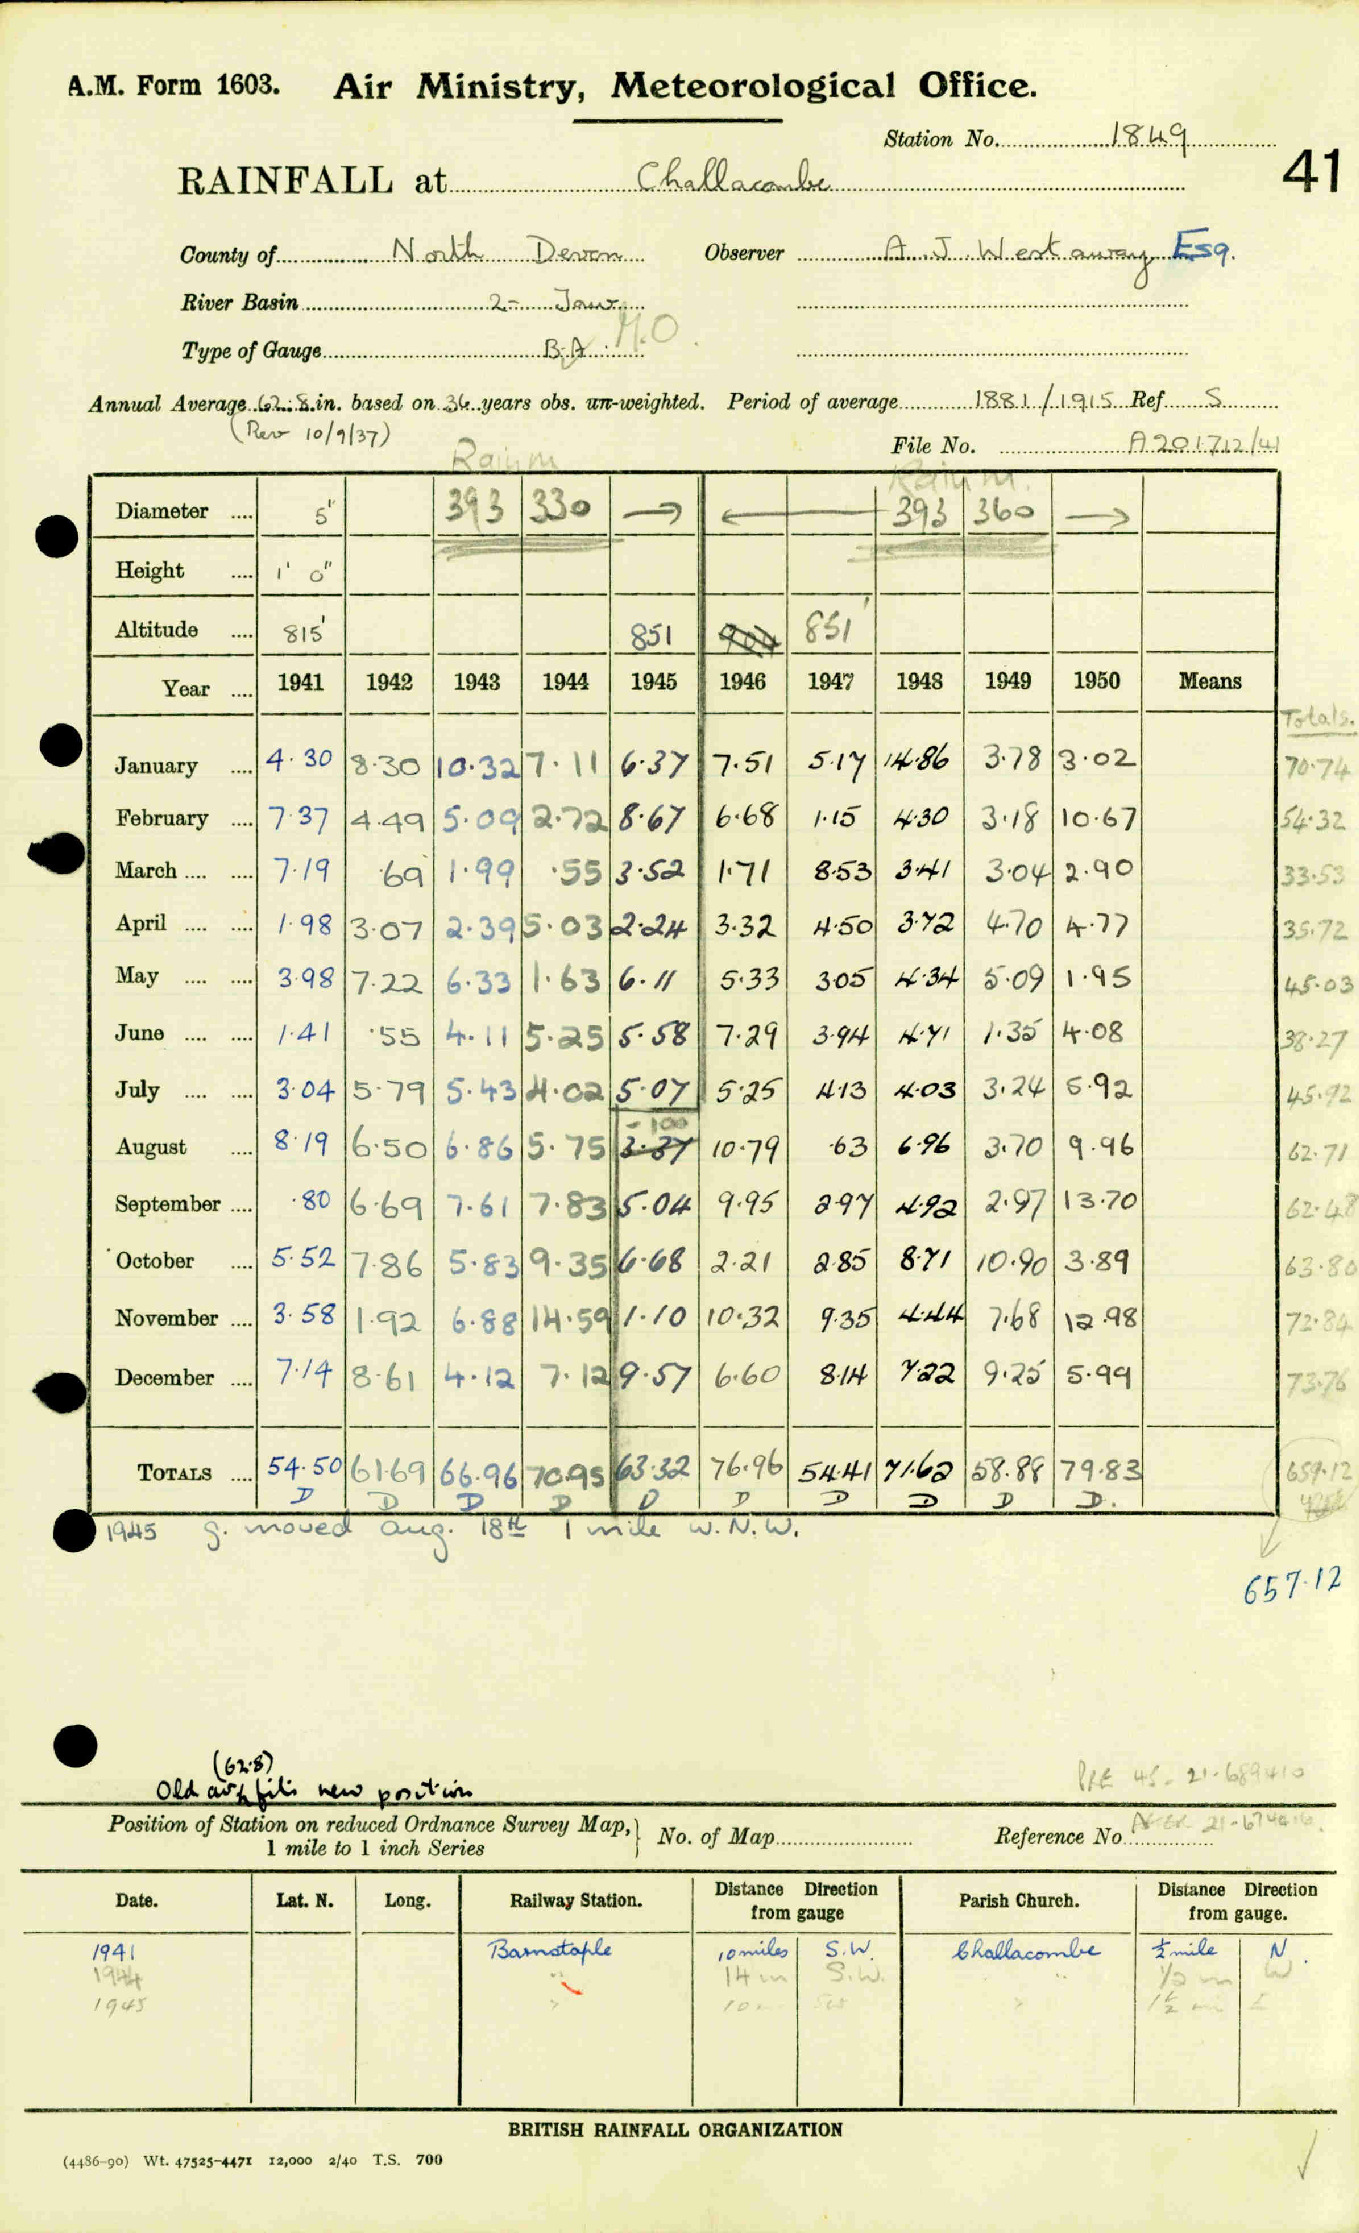 A.M. Form 1603. Air Ministry, Meteorological Office.
Station No. 1849
41
RAINFALL at Challacombe
County of North Devon Observer A. J. Westaway Esq.
River Basin 2- Taw
Type of Gauge B.A M.O.
Annual Average 62.8 in. based on 36 years obs. un-weighted. Period of average 1881/1915 Ref S
(Rev 10/9/37) File No. A201712/41
Rain m. Rain m.
Diameter .... 5" 393 330 → ← 393 360 →
Height .... 1' 0"
Altitude .... 815' 851 904 851'
Year .... 1941 1942 1943 1944 1945 1946 1947 1948 1949 1950 Means
Totals.
January .... 4.30 8.30 10.32 7.11 6.37 7.51 5.17 14.86 3.78 3.02 70.74
February .... 7.37 4.49 5.09 2.72 8.67 6.68 1.15 4.30 3.18 10.67 54.32
March .... .... 7.19 .69 1.99 .55 3.52 1.71 8.53 3.41 3.04 2.90 33.53
April .... .... 1.98 3.07 2.39 5.03 2.24 3.32 4.50 3.72 4.70 4.77 35.72
May .... .... 3.98 7.22 6.33 1.63 6.11 5.33 3.05 4.34 5.09 1.95 45.03
June .... .... 1.41 .55 4.11 5.25 5.58 7.29 3.94 4.71 1.35 4.08 38.27
July .... .... 3.04 5.79 5.43 4.02 5.07 5.25 4.13 4.03 3.24 5.92 45.92
- 100
August .... 8.19 6.50 6.86 5.75 3.37 10.79 .63 6.96 3.70 9.96 62.71
September .... .80 6.69 7.61 7.83 5.04 9.95 2.97 4.92 2.97 13.70 62.48
October .... 5.52 7.86 5.83 9.35 6.68 2.21 2.85 8.71 10.90 3.89 63.80
November .... 3.58 1.92 6.88 14.59 1.10 10.32 9.35 4.44 7.68 12.98 72.84
December .... 7.14 8.61 4.12 7.12 9.57 6.60 8.14 7.22 9.25 5.99 73.76
TOTALS .... 54.50 61.69 66.96 70.95 63.32 76.96 54.41 71.62 58.88 79.83 659.12
D D D D D D D D D D.
1945 g. moved Aug. 18th 1 mile W.N.W.
657.12
(62.8)
Old av. fits new position
PRE 45 - 21-689410
Position of Station on reduced Ordnance Survey Map, 1 mile to 1 inch Series No. of Map Reference No. AFTER
Date. Lat. N. Long. Railway Station. Distance Direction from gauge Parish Church. Distance Direction from gauge.
1941 Barnstaple 10 miles S.W. Challacombe ½ mile N.
1944 " 14 m S.W. " ½ m W
1945 " 10 m SW " 1½ m E
BRITISH RAINFALL ORGANIZATION
(4486-90) Wt. 47525-4471 12,000 2/40 T.S. 700